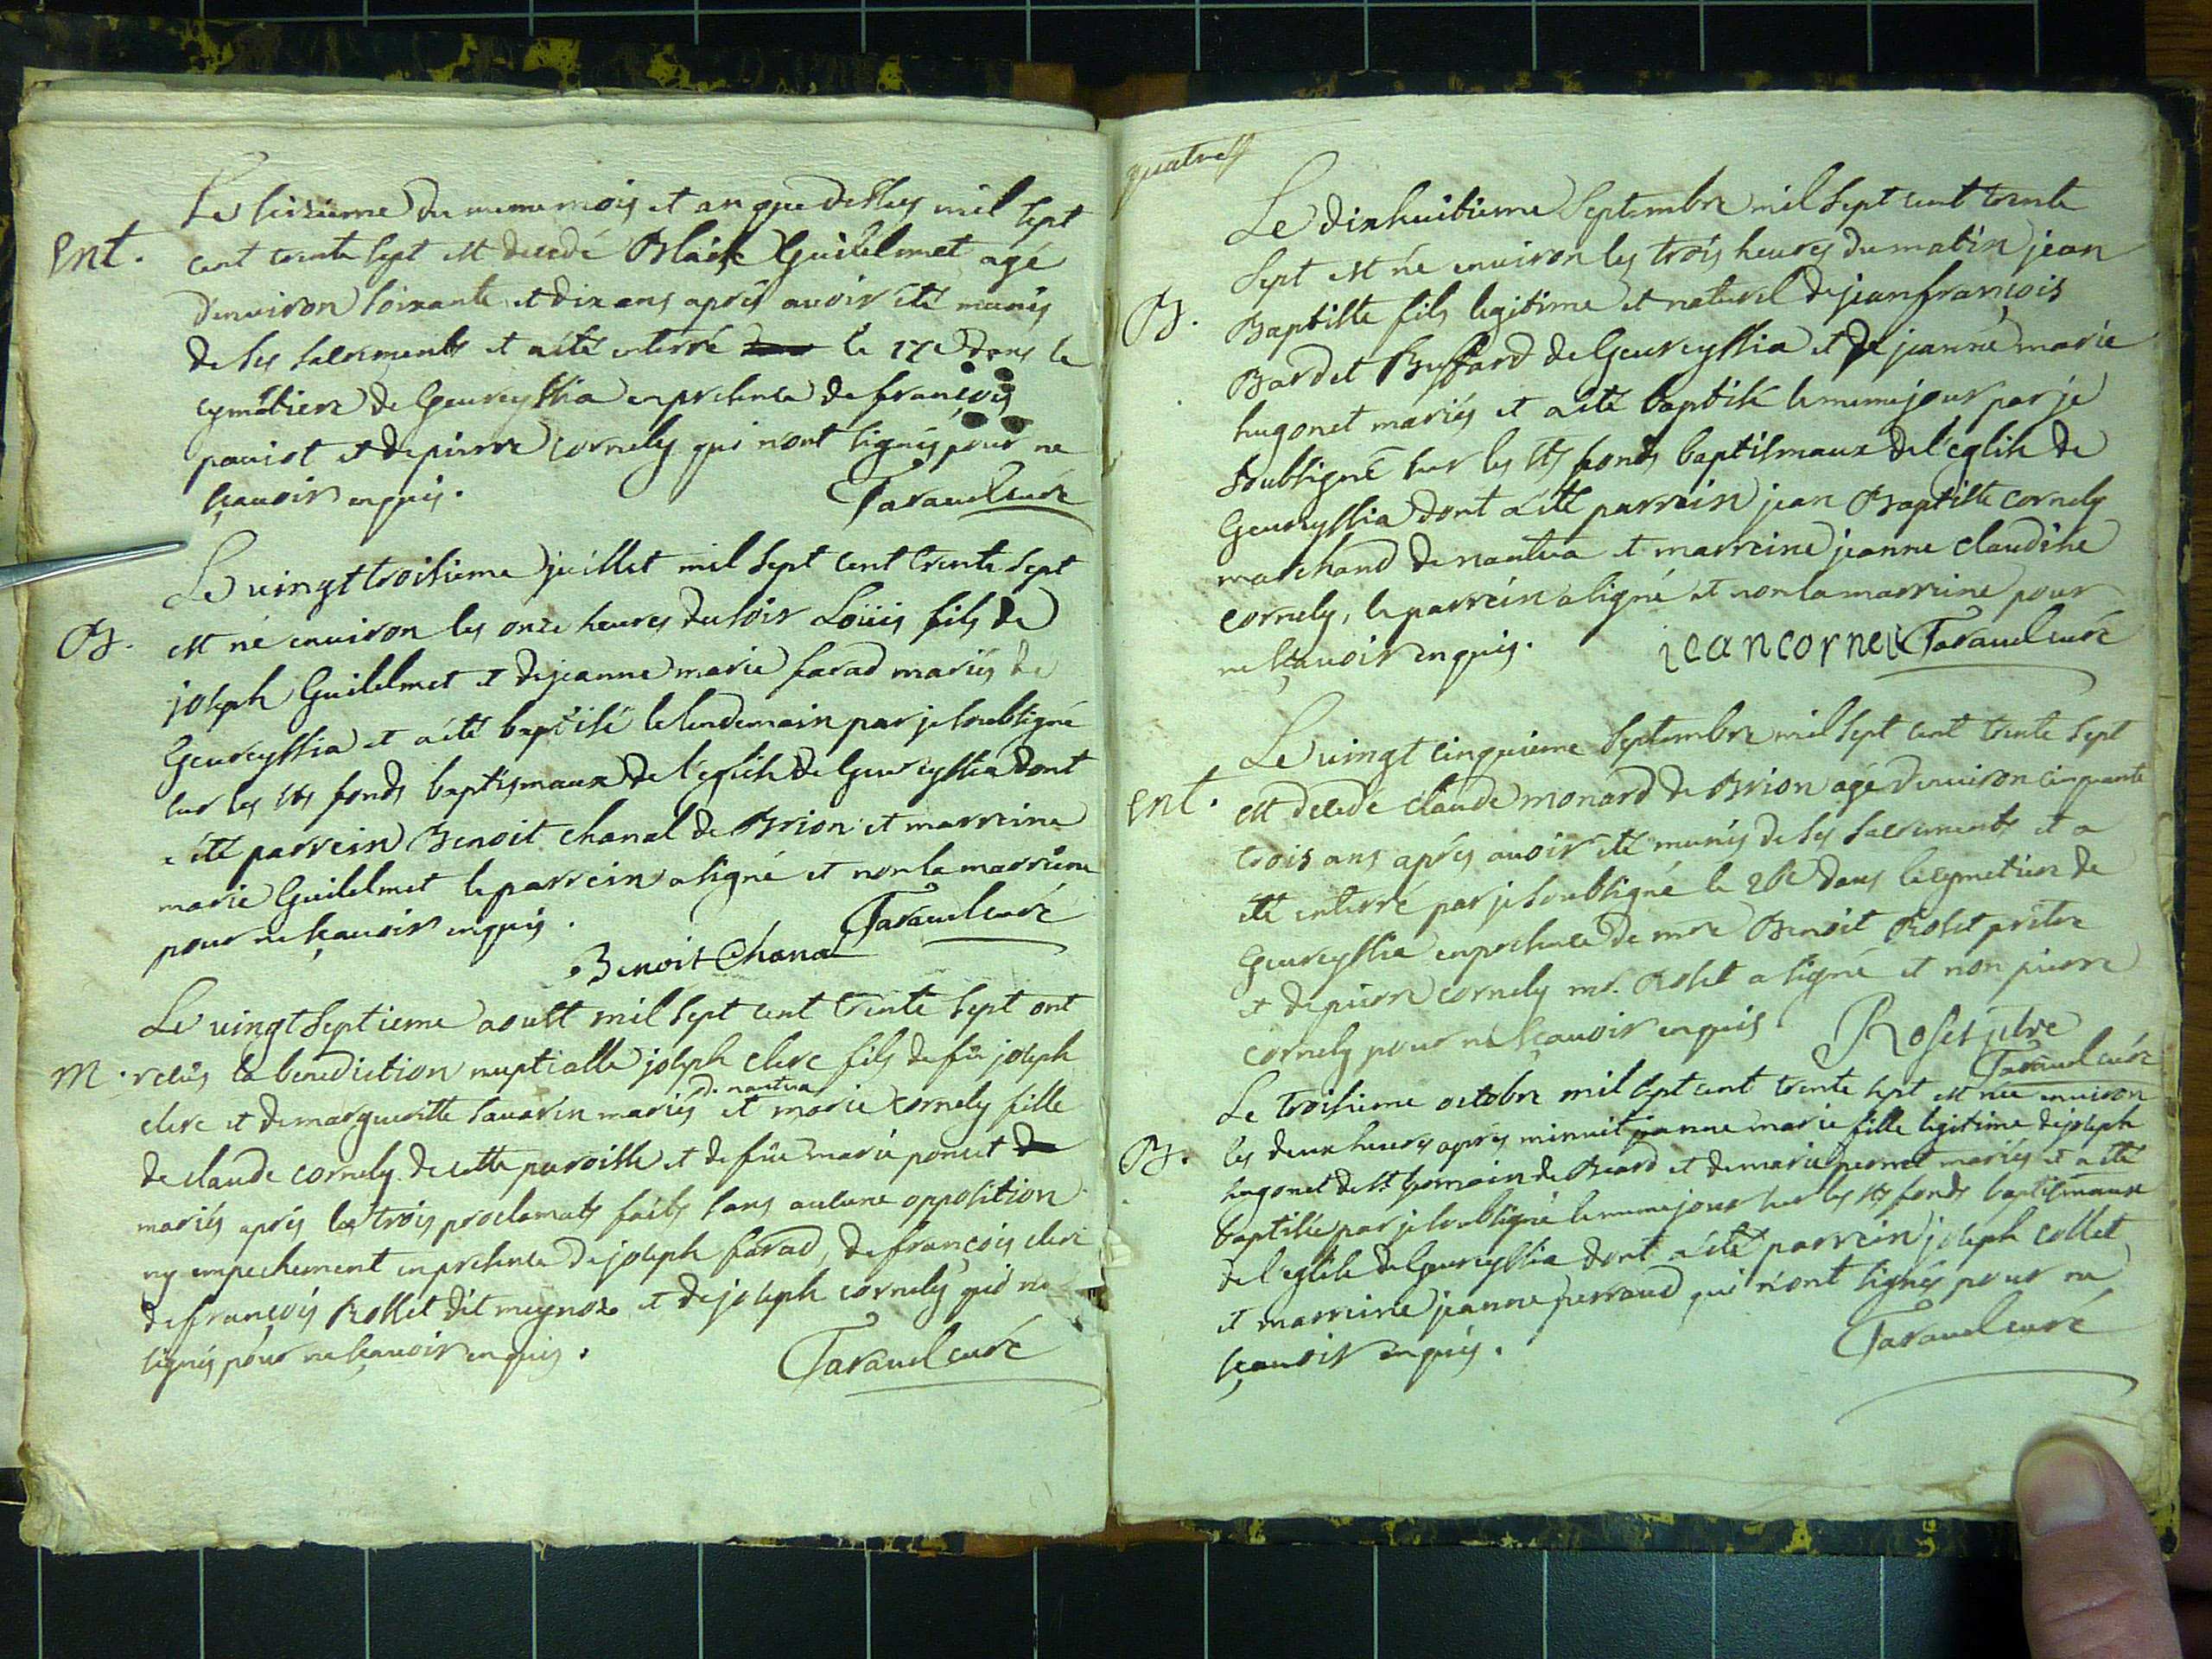 Le seizieme du meme mois et an que dessus mil sept
Ent. cent trente sept est decedé Blaise Guilelmet agé
denviron soixante et dix ans après avoir été munis
de ses sacrements et a été enterré le 17e dans le
cymetiere de Geureyssia en presence de françois
paviot et de pierre cornely qui n'ont signés pour ne
sçavoir enquis. Taravel curé
Le vingt troisieme juillet mil sept cent trente sept
B. est né environ les onze heures du soir Loüis fils de
joseph Guilelmet et de jeanne marie farad mariés de
Geureyssia et a été baptisé le lendemain par je soubsigné
sur les sts fonds baptismaux de l'eglise de Geureyssia dont
a été parrein Benoit chanal de Brion et marreine
marie Guilelmet le parrein a signé et non la marreine
pour ne sçavoir enquis. Taravel curé
Benoit Chanal
Le vingt septieme aoust mil sept cent trente sept ont
M. reçus la benediction nuptialle joseph clerc fils de fû joseph
clerc et de margueritte savarin mariés de nantua et marie cornely fille
de claude cornely de cette paroisse et de füe marie poncet
mariés aprés les trois proclamats faits sans aucune opposition
ny empechement en presence de joseph farad, de françois clerc
de françois Rosset dit meynoz et de joseph cornely qui ne
signés pour ne sçavoir enquis. Taravel curé
quatre
Le dixhuitieme Septembre mil sept cent trente
sept est né environ les trois heures du matin jean
B. Baptiste fils legitime et naturel de jeanfrançois
Bardet Buffard de Geureyssia et de jeanne marie
hugonet mariés et a été baptisé le meme jour par je
soubsigné sur les sts fonds baptismaux de l'eglise de
Geureyssia dont a été parrein jean Baptiste cornely
marchand de nantua et marreine jeanne claudine
cornely, le parrein a signé et non la marreine pour
ne sçavoir enquis. jean cornel Taravel curé
Le vingt cinquieme Septembre mil sept cent trente sept
Ent. est decedé claude monard de Brion agé denviron cinquante
trois ans aprés avoir été munis de ses sacrements et a
été enterré par je soubsigné le 26e dans le cymetiere de
Geureyssia en presence de mre Benoit Roset prêtre
et de pierre cornely mr. Roset a signé et non pierre
cornely pour ne sçavoir enquis. Roset ptre
Taravel curé
Le troisieme octobre mil sept cent trente sept est née environ
B. les deux heures aprés minuit jeanne marie fille legitime de joseph
hugonet de st germain de Beard et de marie pernet mariés et a été
baptisée par je soubsigné le meme jour sur les sts fonds baptismaux
de l'eglise de Geureyssia dont a été parrein joseph collet
et marreine jeanne perraud qui n'ont signés pour ne
sçavoir enquis. Taravel curé